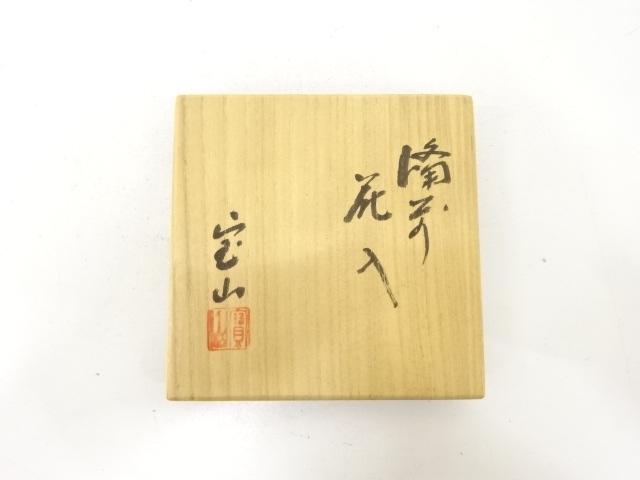 備前
花入
宝山